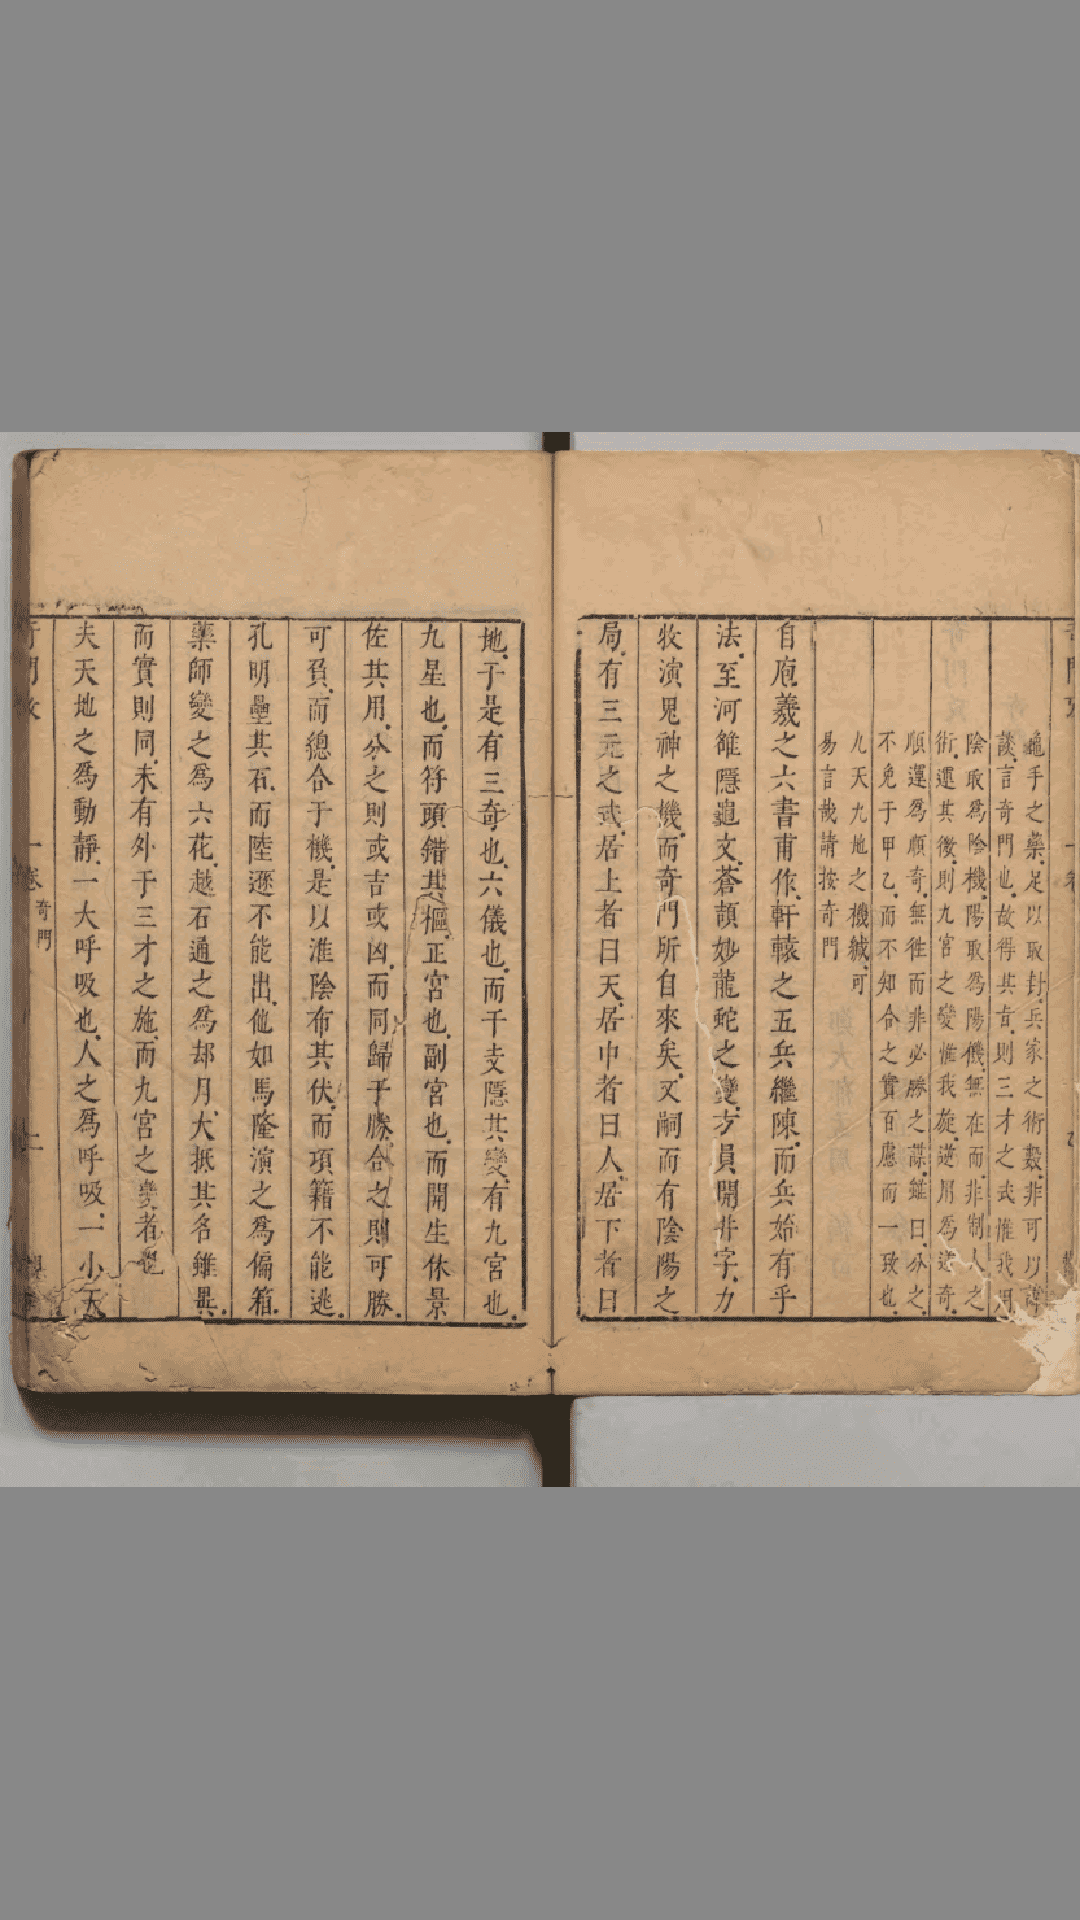 龜手之藥.足以取封.兵家之術數.非可以
談.言奇門也.故得其言.則三才之式惟我用
陰取為陰機.陽取為陽機.無在而非制人之
術.還其後.則九宮之變惟我旋.逆用為逆奇.
順運為順奇.無往而非必勝之謀.雖曰分之.
不免于甲乙.而不知合之實百慮而一致也.
九天九地之機緘.可
易言哉請按奇門
自庖羲之六書甫作.軒轅之五兵繼陳.而兵始有乎
法.至河雒隱龜文.蒼頡妙龍蛇之變.方員開井字.力
牧演鬼神之機.而奇門所自來矣.又嗣而有陰陽之
局.有三元之或.居上者曰天.居中者曰人.居下者曰
地.于是有三奇也.六儀也.而干支隱其變.有九宮也.
九星也.而符頭錯其樞.正宮也.副宮也.而開生休景
佐其用.分之則或吉或凶.而同歸于勝.合之則可勝.
可負.而總合于機.是以淮陰布其伏.而項籍不能逃.
孔明壘其石.而陸遜不能出.他如馬隆演之為偏箱.
藥師變之為六花.越石通之為却月.大抵其名雖異.
而實則同.未有外于三才之施.而九宮之變者也
夫天地之為動靜.一大呼吸也.人之為呼吸.一小天
一卷 奇門